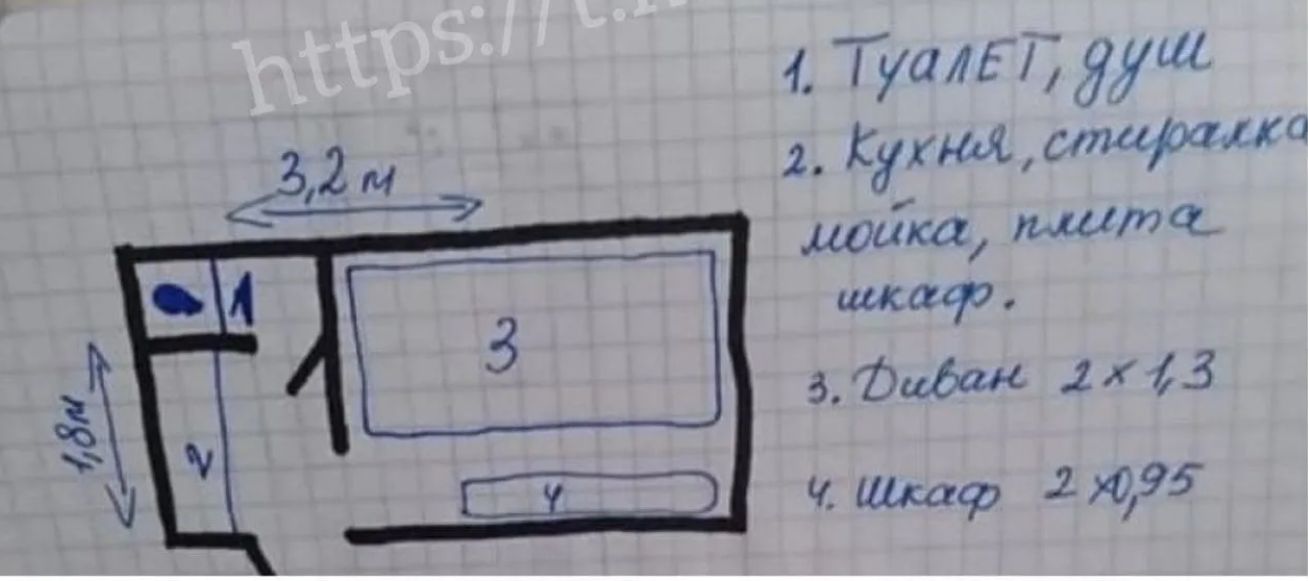 https://t.
3,2 м
1. Туалет, душ
2. Кухня, стиралка
мойка, плита
шкаф.
3. Диван 2 x 1,3
4. Шкаф 2 x0,95
1
3
1,8м
2
4